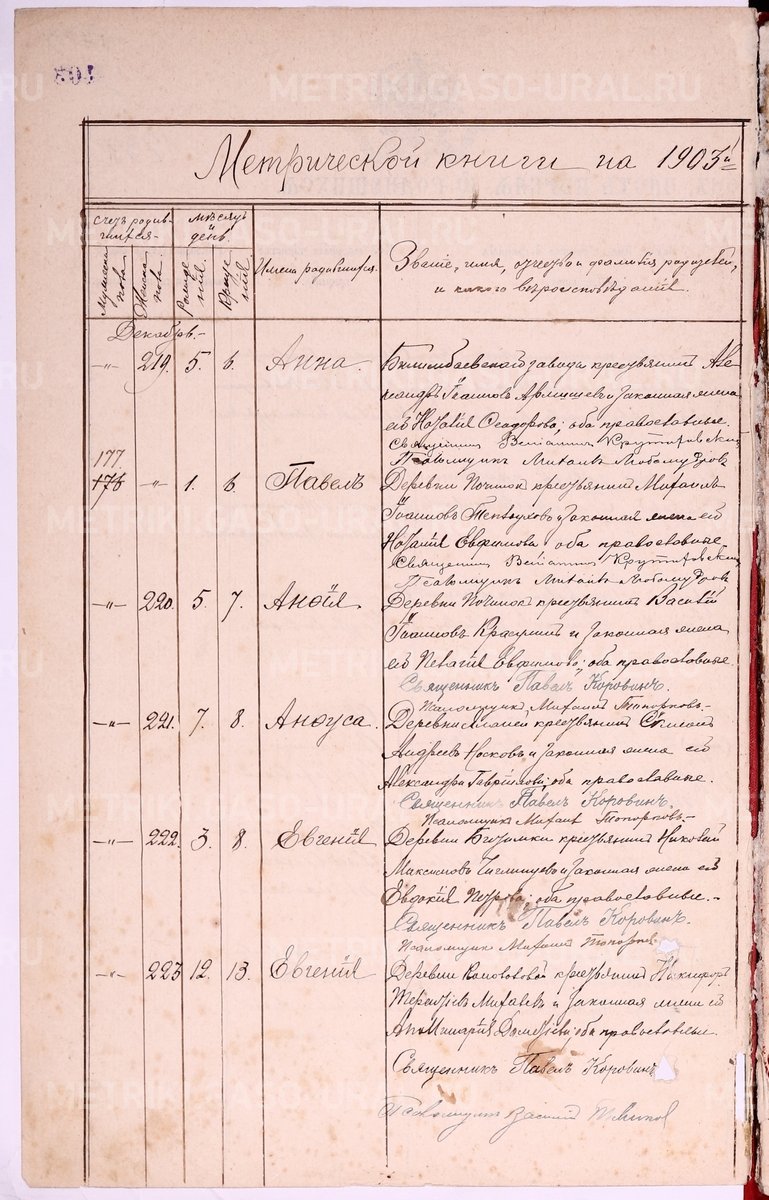 METRIKI.GASO-URAL.RU
801
Метрической книги на 1903й
Счетъ родив-
шихся.
Мужеска
пола.
Женска
пола.
Мѣсяцъ
и
день.
Рожде
нія.
Креще
нія.
Имена родившихся.
Званіе, имя, отчество и фамилія родителей,
и какого вѣроисповѣданія.
Декабрь.-
-"- 219. 5. 6. Анна. Билимбаевскаго завода крестьянинъ Але-
ксандръ Іоанновъ и законная жена
его Наталія Ѳеодорова; оба православные.
Священникъ Веніаминъ
Псаломщикъ Михаилъ Любомудровъ
177.
176 -"- 1. 6. Павелъ Деревни Починокъ крестьянинъ Михаилъ
Іоанновъ и законная жена его
Наталія Евфимова, оба православные.
Священникъ Веніаминъ
Псаломщикъ Михаилъ Любомудровъ
-"- 220. 5. 7. Анѳія Деревни Починокъ крестьянинъ Василій
Іоанновъ и законная жена
его Пелагія Евфимова; оба православные.
Священникъ Павелъ Коровинъ.
Псаломщикъ Михаилъ Топорковъ.-
-"- 221. 7. 8. Анѳуса. Деревни крестьянинъ Стефанъ
Андреевъ Носковъ и законная жена его
Александра Гавріилова; оба православные.
Священникъ Павелъ Коровинъ.
Псаломщикъ Михаилъ Топорковъ.-
-"- 222. 3. 8. Евгенія Деревни крестьянинъ Николай
Максимовъ и законная жена его
Евдокія Петрова; оба православные.-
Священникъ Павелъ Коровинъ.
Псаломщикъ Михаилъ Топорковъ
-"- 223 12. 13. Евгенія Деревни Коноваловой крестьянинъ Никифоръ
и законная жена его
оба православные.
Священникъ Павелъ Коровинъ
Псаломщикъ Василій